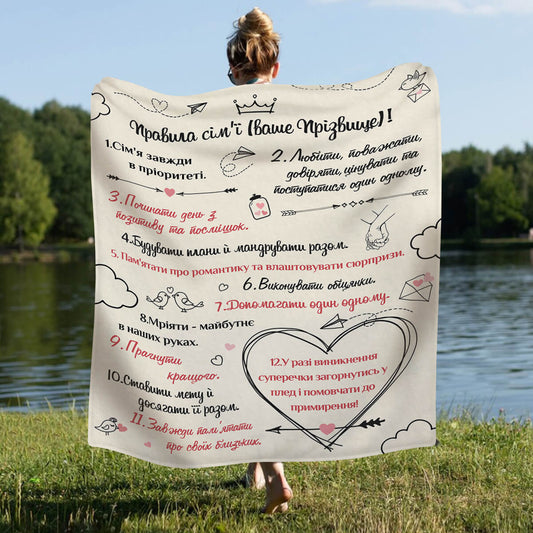 Правила сім'ї (Ваше Прізвище)!
1.Сім'я завжди
в пріоритеті.
2. Любити, поважати,
довіряти, цінувати та
поступатися один одному.
3. Починати день з
позитиву та посмішок.
4.Будувати плани й мандрувати разом.
5. Пам'ятати про романтику та влаштовувати сюрпризи.
6. Виконувати обіцянки.
7.Допомагати один одному.
8.Мріяти - майбутнє
в наших руках.
9. Прагнути
кращого.
10.Ставити мету й
досягати її разом.
11. Завжди пам'ятати
про своїх близьких.
12.У разі виникнення
суперечки загорнутись у
плед і помовчати до
примирення!